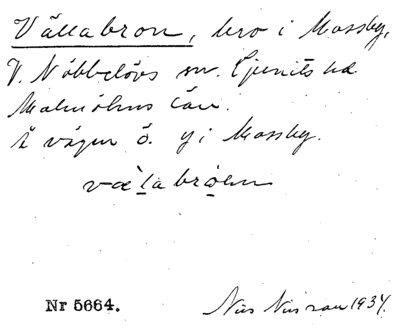 Vällabron, bro i Mossby,
V. Nöbbelövs sn. Ljunits hd
Malmöhus län.
Å vägen ö. y i Mossby.
væ̀l̤abro̤en
Nr 5664.
Nils Nilsson 1934.